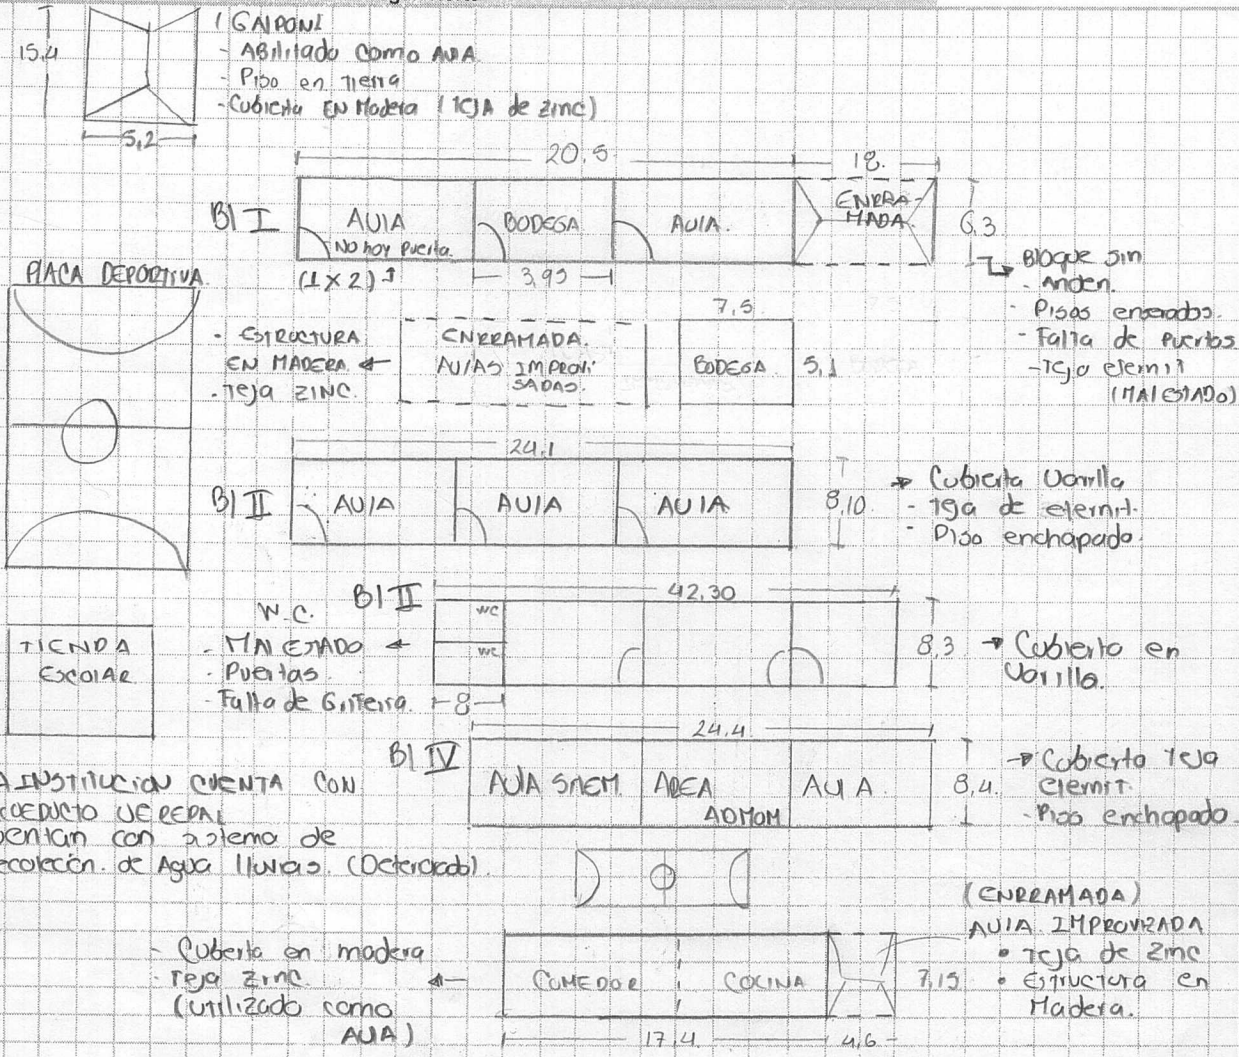 15,4
1 GAlPONI
- ABilitado como AulA
- Piso en Tierra
- Cubierta EN Madera (TEJA de zinc)
5,2
20,5
18.
Bl I
AUlA
No hay puerta.
BODEGA
AUlA.
ENRRA-
MADA.
6,3
(1 x 2)
3,95
Bloque sin
- Anden.
- Pisos
- Falta de puertas
- Teja eternit
(MAl ESTADO)
PlACA DEPORTIVA
- ESTRUCTURA
EN MADERA
- Teja ZINC.
ENRRAMADA.
AUlAS IMPROVI
SADAS.
7,5
BODEGA
5,1
24,1
Bl II
AUlA
AUlA
AUlA
8,10
Cubierta Varilla
- Teja de eternit.
- Piso enchapado.
Bl II
42,30
W.C.
- MAl ESTADO
- Puertas
- Falta de Griferia.
WC
WC
8
8,3
Cubierta en
Varilla.
TIENDA
ESCOlAR
24.4
Bl IV
AUlA
AREA
ADMON
AUlA
8,4
Cubierta Teja
eternit.
- Piso enchapado.
A INSTITUCION CUENTA CON
OEDUCTO VEREDAl
entan con sistema de
ecoleción. de Agua lluvias. (Deteriorado).
- Cubierta en madera
- Teja Zinc.
(utilizado como
AUlA)
COMEDOR
COCINA
17,4
4,6
7,15
(ENRRAMADA)
AUlA IMPROVIZADA
• Teja de Zinc
• Estructura en
Madera.